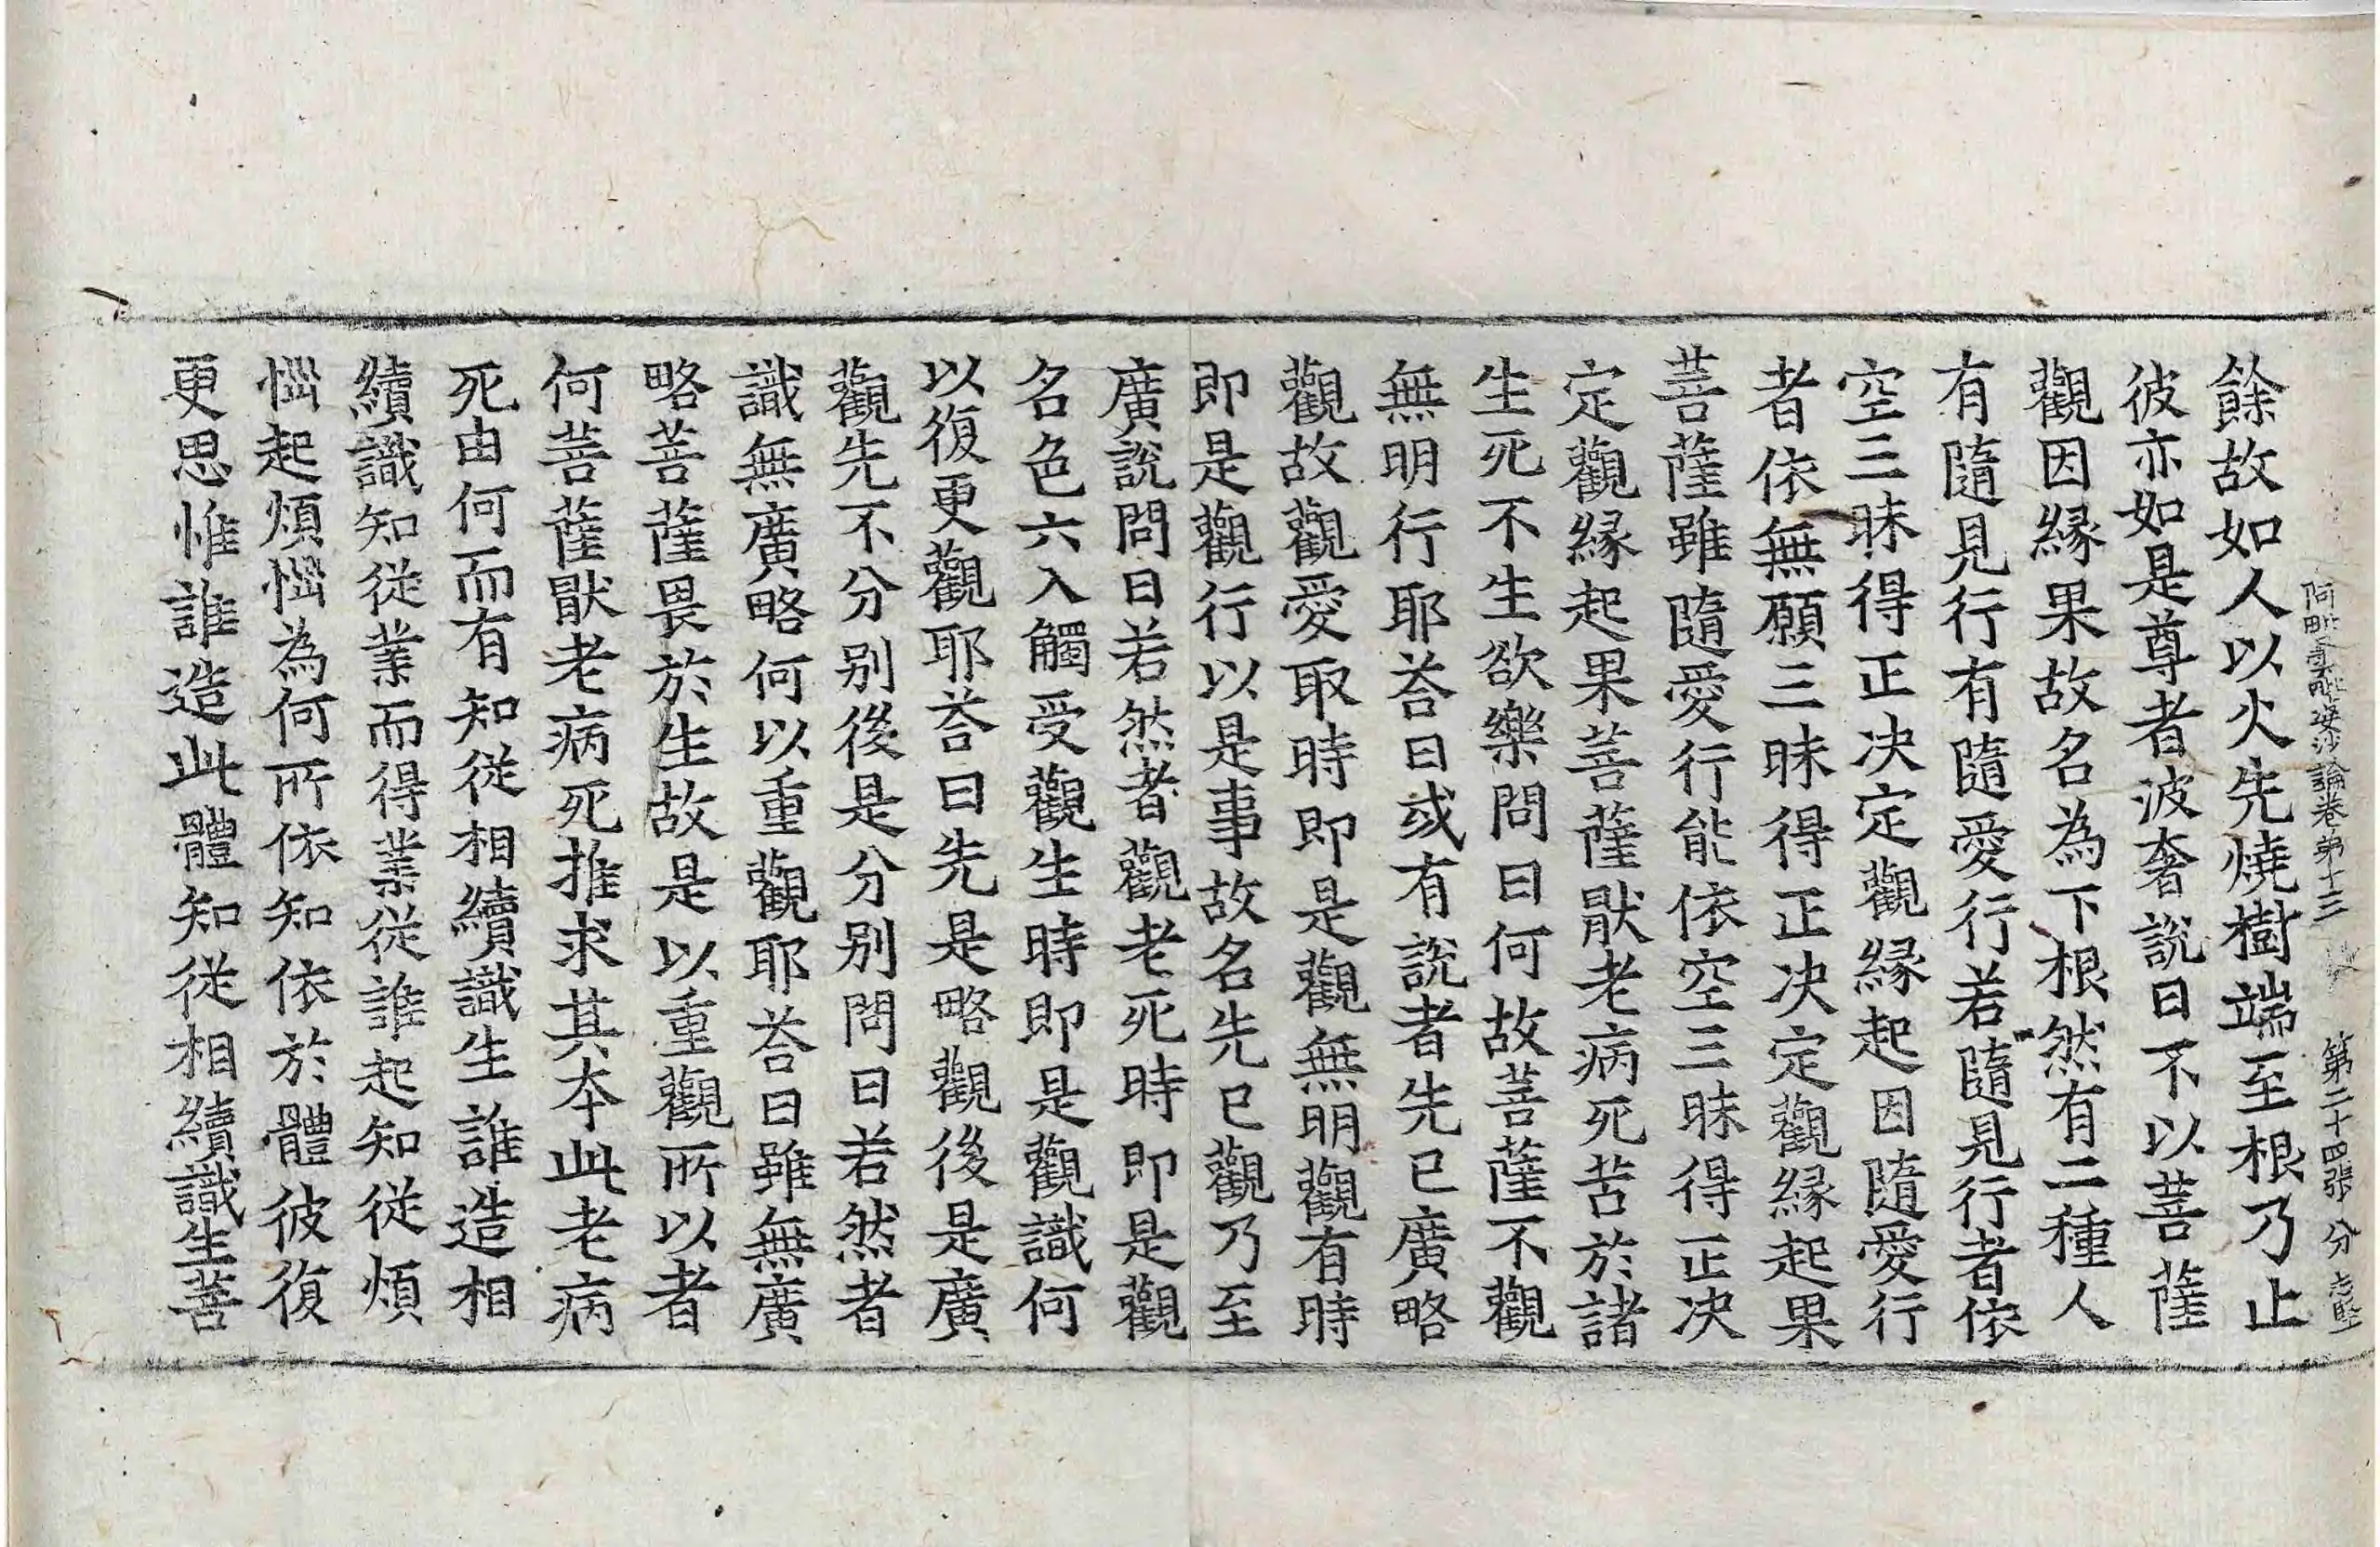 阿毗曇毗婆沙論卷第十三 第二十四張 分 志堅
餘故如人以火先燒樹端至根乃止
彼亦如是尊者波奢說曰不以菩薩
觀因緣果故名為下根然有二種人
有隨見行有隨愛行若隨見行者依
空三昧得正决定觀緣起因隨愛行
者依無願三昧得正决定觀緣起果
菩薩雖隨愛行能依空三昧得正决
定觀緣起果菩薩猒老病死苦於諸
生死不生欲樂問曰何故菩薩不觀
無明行耶荅曰或有說者先已廣略
觀故觀愛取時即是觀無明觀有時
即是觀行以是事故名先已觀乃至
廣說問曰若然者觀老死時即是觀
名色六入觸受觀生時即是觀識何
以復更觀耶荅曰先是略觀後是廣
觀先不分别後是分别問曰若然者
識無廣略何以重觀耶荅曰雖無廣
略菩薩畏於生故是以重觀所以者
何菩薩猒老病死推求其本此老病
死由何而有知從相續識生誰造相
續識知從業而得業從誰起知從煩
惱起煩惱為何所依知依於體彼復
更思惟誰造此體知從相續識生菩